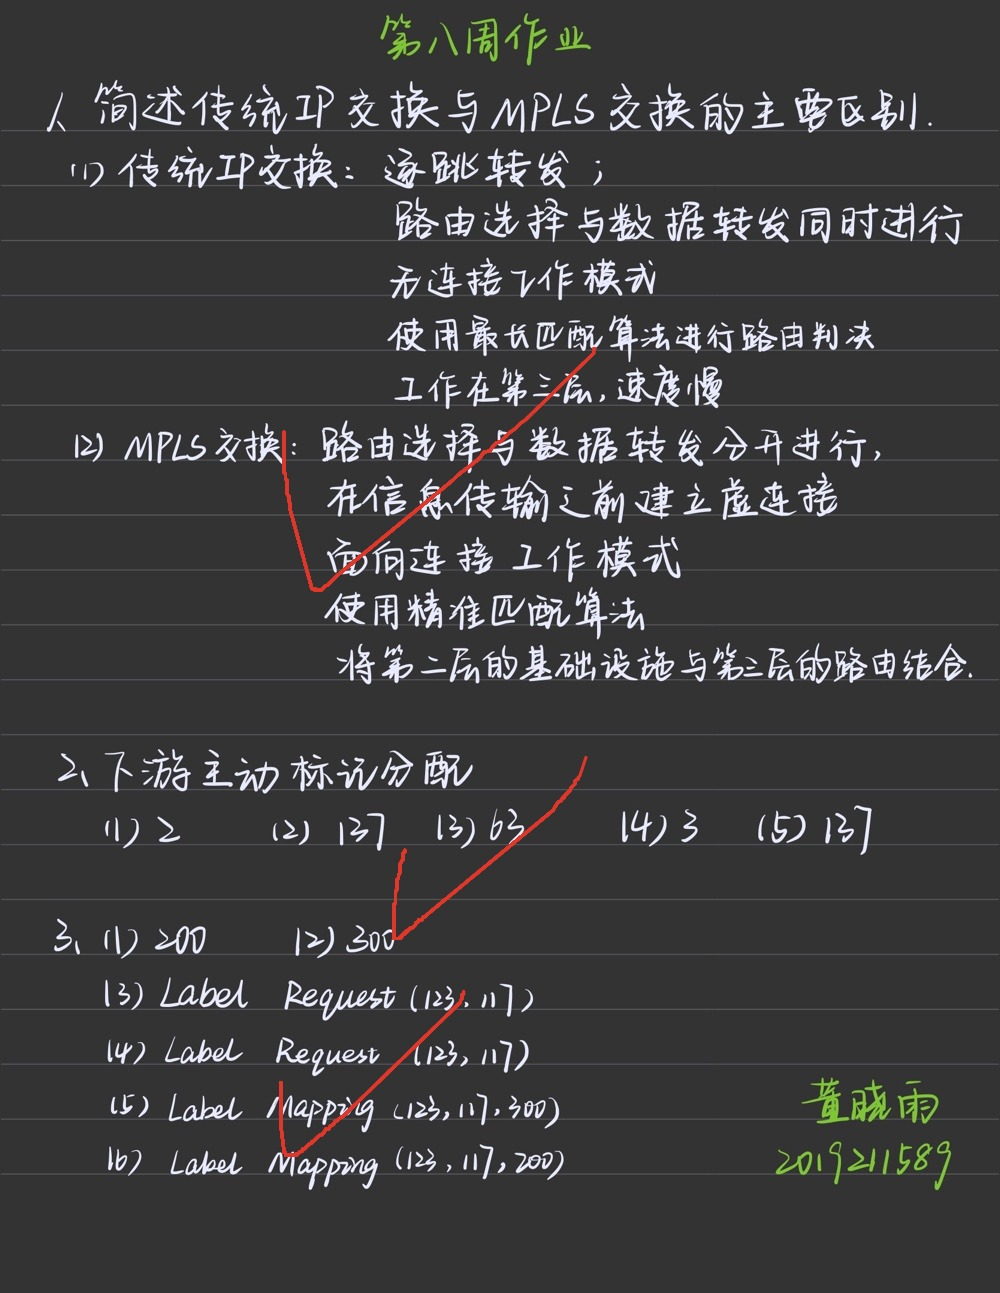 第八周作业
1、简述传统IP交换与MPLS交换的主要区别.
(1) 传统IP交换：逐跳转发；
路由选择与数据转发同时进行
无连接工作模式
使用最长匹配算法进行路由判决
工作在第三层,速度慢
(2) MPLS交换：路由选择与数据转发分开进行,
在信息传输之前建立虚连接
面向连接工作模式
使用精准匹配算法
将第二层的基础设施与第三层的路由结合.
2、下游主动标记分配
(1) 2 (2) 137 (3) 63 (4) 3 (5) 137
3、(1) 200 (2) 300
(3) Label Request (123, 117)
(4) Label Request (123, 117)
(5) Label Mapping (123, 117, 300)
(6) Label Mapping (123, 117, 200)
董晓雨
2019211589